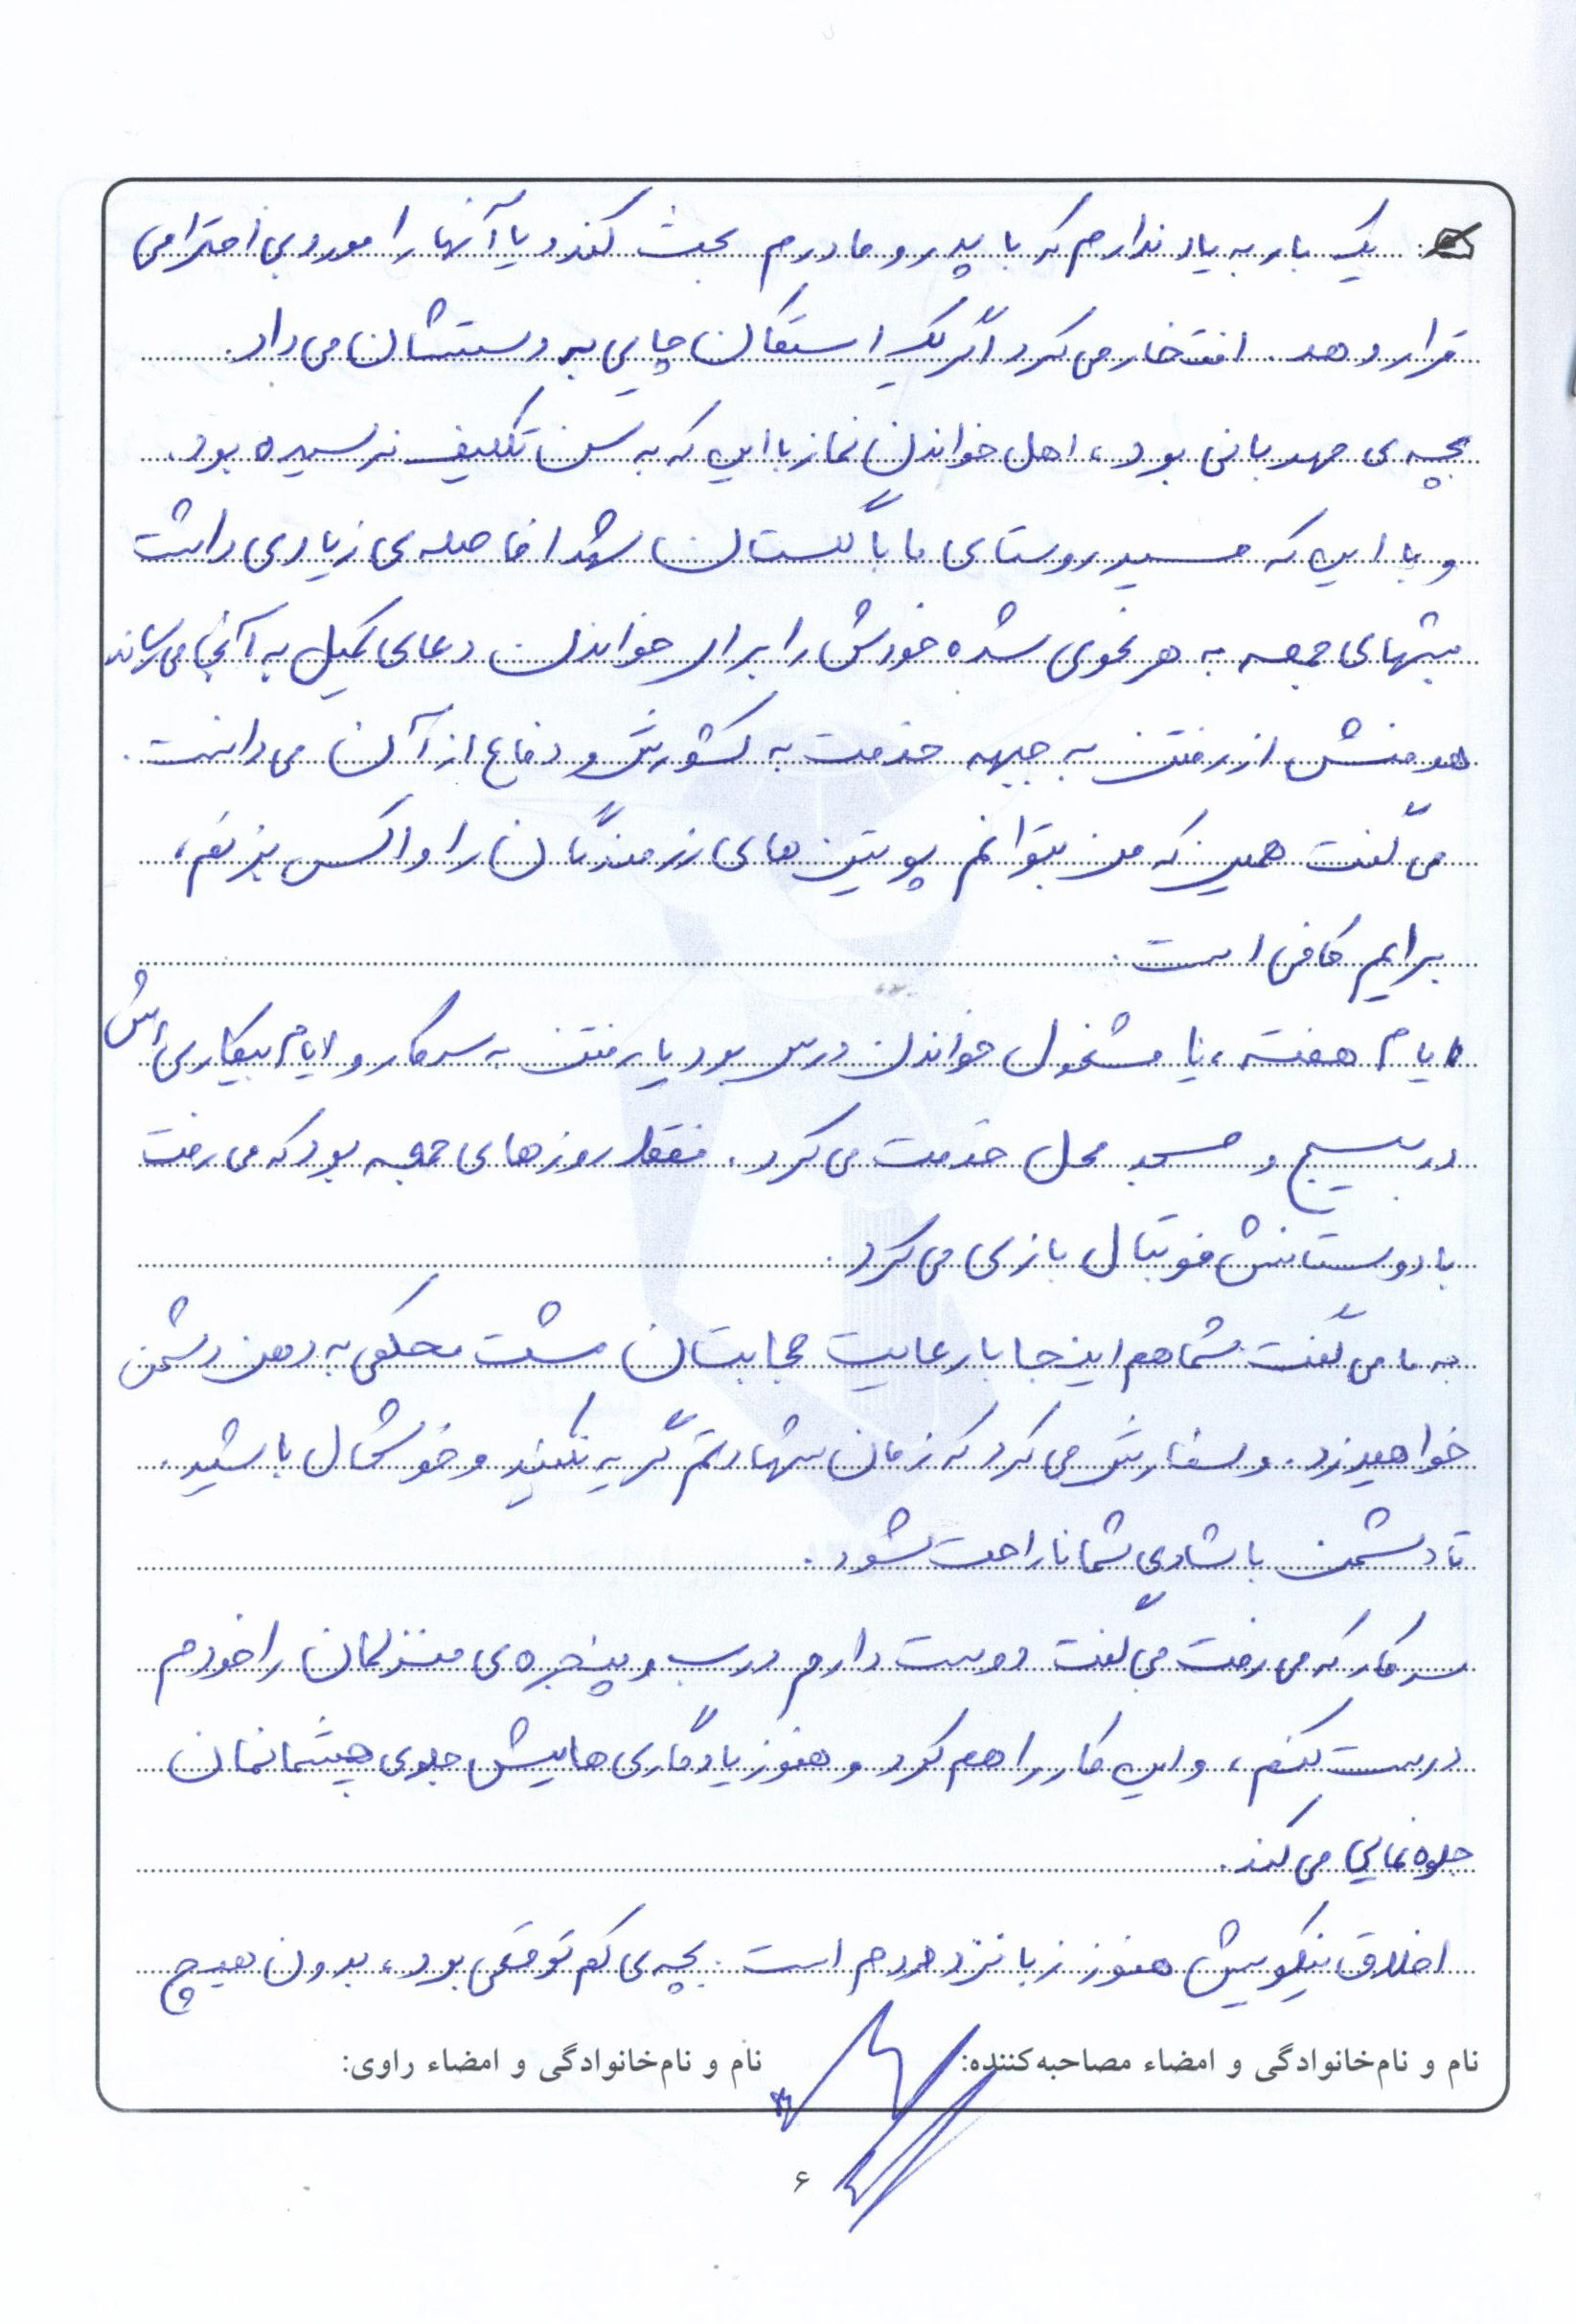 یک بار به یاد ندارم که با پدر و مادرم بحث کند و یا آنها را مورد بی احترامی
قرار دهد. افتخار می کرد اگر یک استکان چایی به دستشان می داد.
بچه ی مهربانی بود، اهل خواندن نماز با این که به سن تکلیف نرسیده بود.
و با این که مسیر روستای ما با گلستان شهدا فاصله ی زیادی داشت
شبهای جمعه به هر نحوی شده خودش را برای خواندن دعای کمیل به آنجا می رساند
هدفش از رفتن به جبهه خدمت به کشورش و دفاع از آن می دانست.
می گفت همین که من بتوانم پوتین های رزمندگان را واکس بزنم،
برایم کافی است.
ایام هفته، یا مشغول خواندن درس بود یا رفتن به سر کار و ایام بیکاری اش
در بسیج و مسجد محل خدمت می کرد. فقط روزهای جمعه بود که می رفت
با دوستانش فوتبال بازی می کرد.
به ما می گفت شما هم اینجا با رعایت حجابتان مشت محکمی به دهن دشمن
خواهید زد. و سفارش می کرد که زمان شهادتم گریه نکنید و خوشحال باشید.
تا دشمن با شادی شما ناراحت شود.
سر کار که می رفت می گفت دوست دارم درب و پنجره ی منزلمان را خودم
درست کنم، و این کار را هم کرد و هنوز یادگاری هایش جلوی چشمانمان
جلوه نمایی می کند.
اخلاق نیکویش هنوز زبانزد مردم است. بچه ی کم توقعی بود، بدون هیچ
نام و نام‌خانوادگی و امضاء مصاحبه‌کننده: نام و نام‌خانوادگی و امضاء راوی:
۶